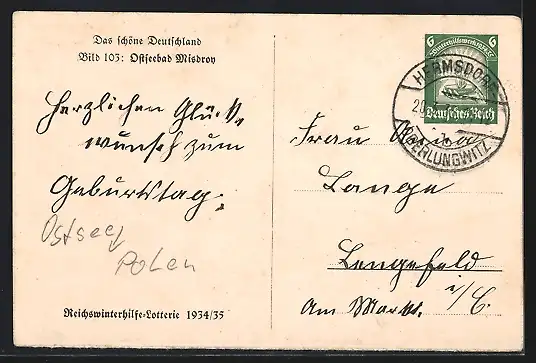 Das schöne Deutschland
Bild 103: Ostseebad Misdroy
Herzlichen Glück-
wunsch zum
Geburtstag.
Ostsee
Polen
Reichswinterhilfe-Lotterie 1934/35
6 6
Winterhilfswerk
Deutsches Reich
HERMSDORF
20
b
OBERLUNGWITZ
Frau
Lange
Lengefeld
i/E.
Am Markt.